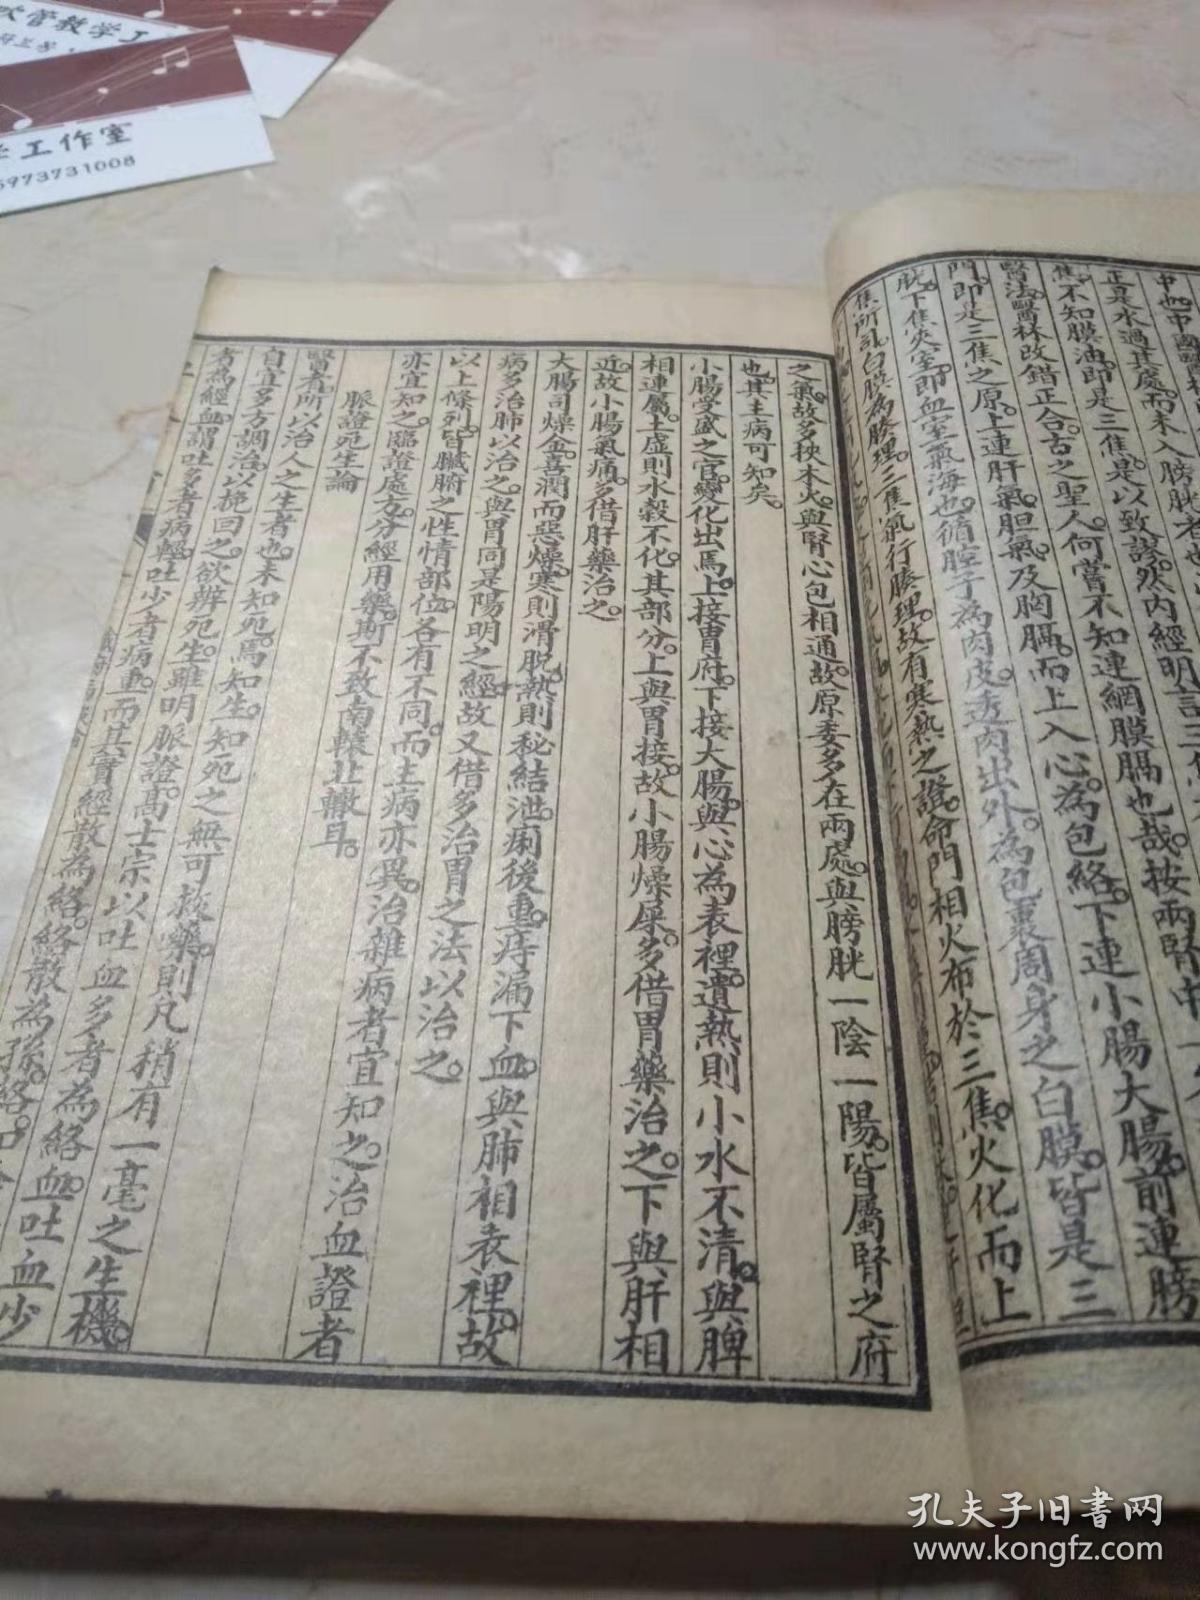 吹管教学工
工作室
5973731008
正是水過其處。而未入膀胱者也。
焦。不知膜油。即是三焦。是以致謬。然內經明言三焦
醫法。醫林改錯正合。古之聖人。何嘗不知連網膜膈也哉。按兩腎中一
門。即是三焦之原。上連肝氣。胆氣。及胸膈。而上入心。為包絡。下連小腸大腸。前連膀
胱。下焦夾室。即血室氣海也。循腔子為肉皮。透肉出外。為包裹周身之白膜。皆是三
焦所司。白膜為腠理。三焦氣行腠理。故有寒熱之證。命門相火布於三焦。火化而上
之氣。故多挾木火。與腎心包相通。故原委多在兩處。與膀胱一陰一陽。皆屬腎之府
也。其主病可知矣。
小腸受盛之官。變化出焉。上接胃府。下接大腸。與心為表裡。遺熱則小水不清。與脾
相連屬。土虛則水穀不化。其部分。上與胃接。故小腸燥屎。多借胃藥治之。下與肝相
近。故小腸氣痛。多借肝藥治之。
大腸司燥金。喜潤而惡燥。寒則滑脫。熱則秘結。泄痢後重。痔漏下血。與肺相表裡。故
病多治肺以治之。與胃同是陽明之經。故又借多治胃之法以治之。
以上條列。皆臟腑之性情部位。各有不同。而主病亦異。治雜病者宜知之。治血證者
亦宜知之。臨證處方。分經用藥。斯不致南轅北轍耳。
脈證死生論
醫者。所以治人之生者也。未知死。焉知生。知死之無可救藥。則凡稍有一毫之生機。
自宜多方調治。以挽回之。欲辨死生。雖明脈證。高士宗以吐血多者為絡血。吐血少
者為經血。謂吐多者病輕。吐少者病重。而其實經散為絡。絡散為孫絡。
孔夫子旧书网
www.kongfz.com